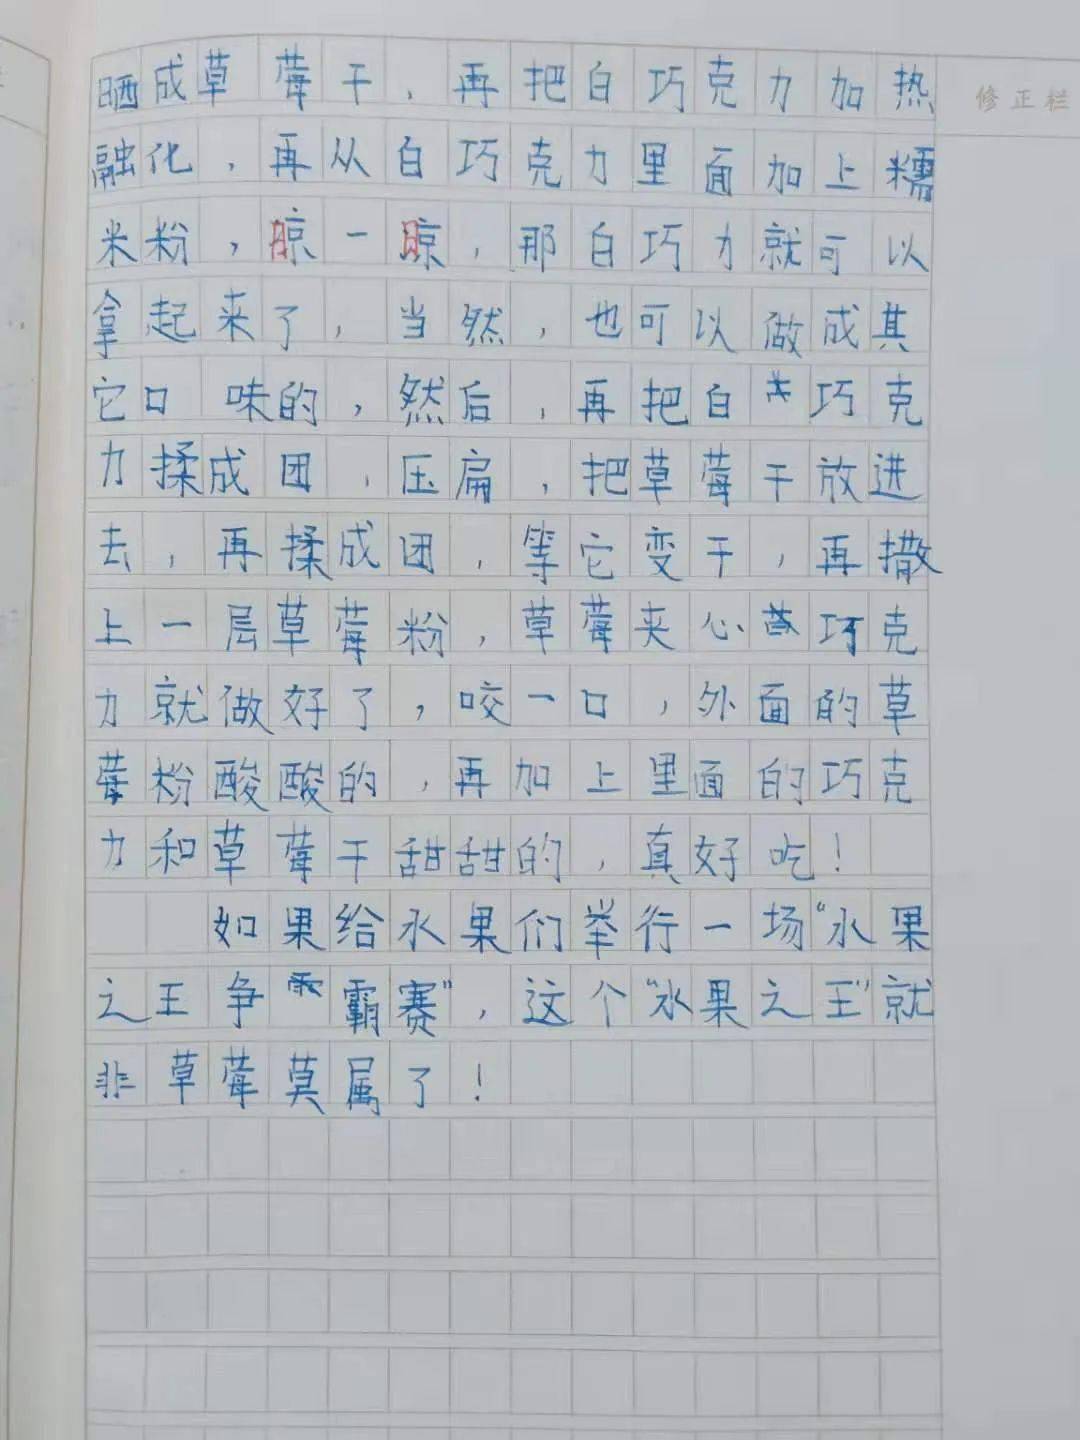 晒成草莓干，再把白巧克力加热
修正栏
融化，再从白巧克力里面加上糯
米粉，晾一晾，那白巧力就可以
拿起来了，当然，也可以做成其
它口味的，然后，再把白巧克
力揉成团，压扁，把草莓干放进
去，再揉成团，等它变干，再撒
上一层草莓粉，草莓夹心巧克
力就做好了，咬一口，外面的草
莓粉酸酸的，再加上里面的巧克
力和草莓干甜甜的，真好吃！
如果给水果们举行一场“水果
之王争霸赛”，这个“水果之王”就
非草莓莫属了！